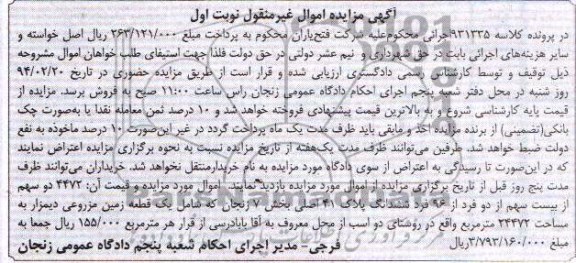 آگهی مزایده اموال غیرمنقول نوبت اول
در پرونده کلاسه ۹۳۱۳۳۵اجرائی محکوم‌علیه شرکت فتح‌یاران محکوم به پرداخت مبلغ ۲۶۳/۱۲۱/۰۰۰ ریال اصل خواسته و
سایر هزینه‌های اجرائی بابت در حق شهرداری و نیم عشر دولتی در حق دولت فلذا جهت استیفای طلب خواهان اموال مشروحه
ذیل توقیف و توسط کارشناس رسمی دادگستری ارزیابی شده و قرار است از طریق مزایده حضوری در تاریخ ۹۴/۰۲/۲۰
روز شنبه در محل دفتر شعبه پنجم اجرای احکام دادگاه عمومی زنجان راس ساعت ۱۱:۰۰ صبح به فروش برسد. مزایده از
قیمت پایه کارشناسی شروع و به بالاترین قیمت پیشنهادی فروخته خواهد شد و ۱۰ درصد ثمن معامله نقدا یا به‌صورت چک
بانکی(تضمینی) از برنده مزایده اخذ و مابقی باید ظرف مدت یک ماه پرداخت گردد در غیر این‌صورت ۱۰ درصد ماخوذه به نفع
دولت ضبط خواهد شد. طرفین می‌توانند ظرف مدت یک‌هفته از تاریخ مزایده نسبت به نحوه برگزاری مزایده اعتراض نمایند
که در این‌صورت تا رسیدگی به اعتراض از سوی دادگاه مورد مزایده به نام خریدارمنتقل نخواهد شد. خریداران می‌توانند ظرف
مدت پنج روز قبل از تاریخ برگزاری مزایده از اموال مورد مزایده بازدید نمایند. اموال مورد مزایده و قیمت آن: ۲۴۷۲ دو سهم
از بیست سهم از دو فرد از ۹۶ فرد ششدانگ پلاک ۴۱ اصلی بخش ۷ زنجان که شامل یک قطعه زمین مزروعی دیمزار به
مساحت ۲۴۴۷۲ مترمربع واقع در روستای دو اسب از محل معروف به آقا بابادرسی از قرار هر مترمربع ۱۵۵/۰۰۰ ریال جمعا به
مبلغ ۳/۷۹۳/۱۶۰/۰۰۰ریال فرجی- مدیر اجرای احکام شعبه پنجم دادگاه عمومی زنجان